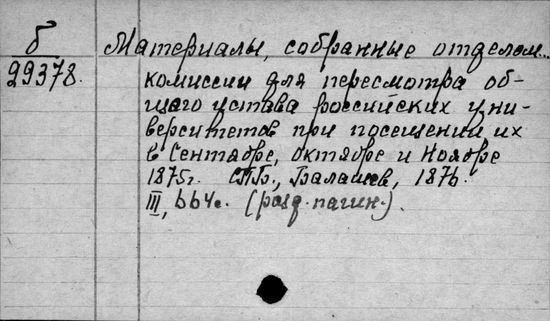 б Материалы, собранные отделом...
29378. комиссии для пересмотра об-
щего устава российских уни-
верситетов при посещении их
в Сентябре, октябре и Ноябре
1875г. СПБ., Балашев, 1876.
III, 664с. (разд. пагин.).